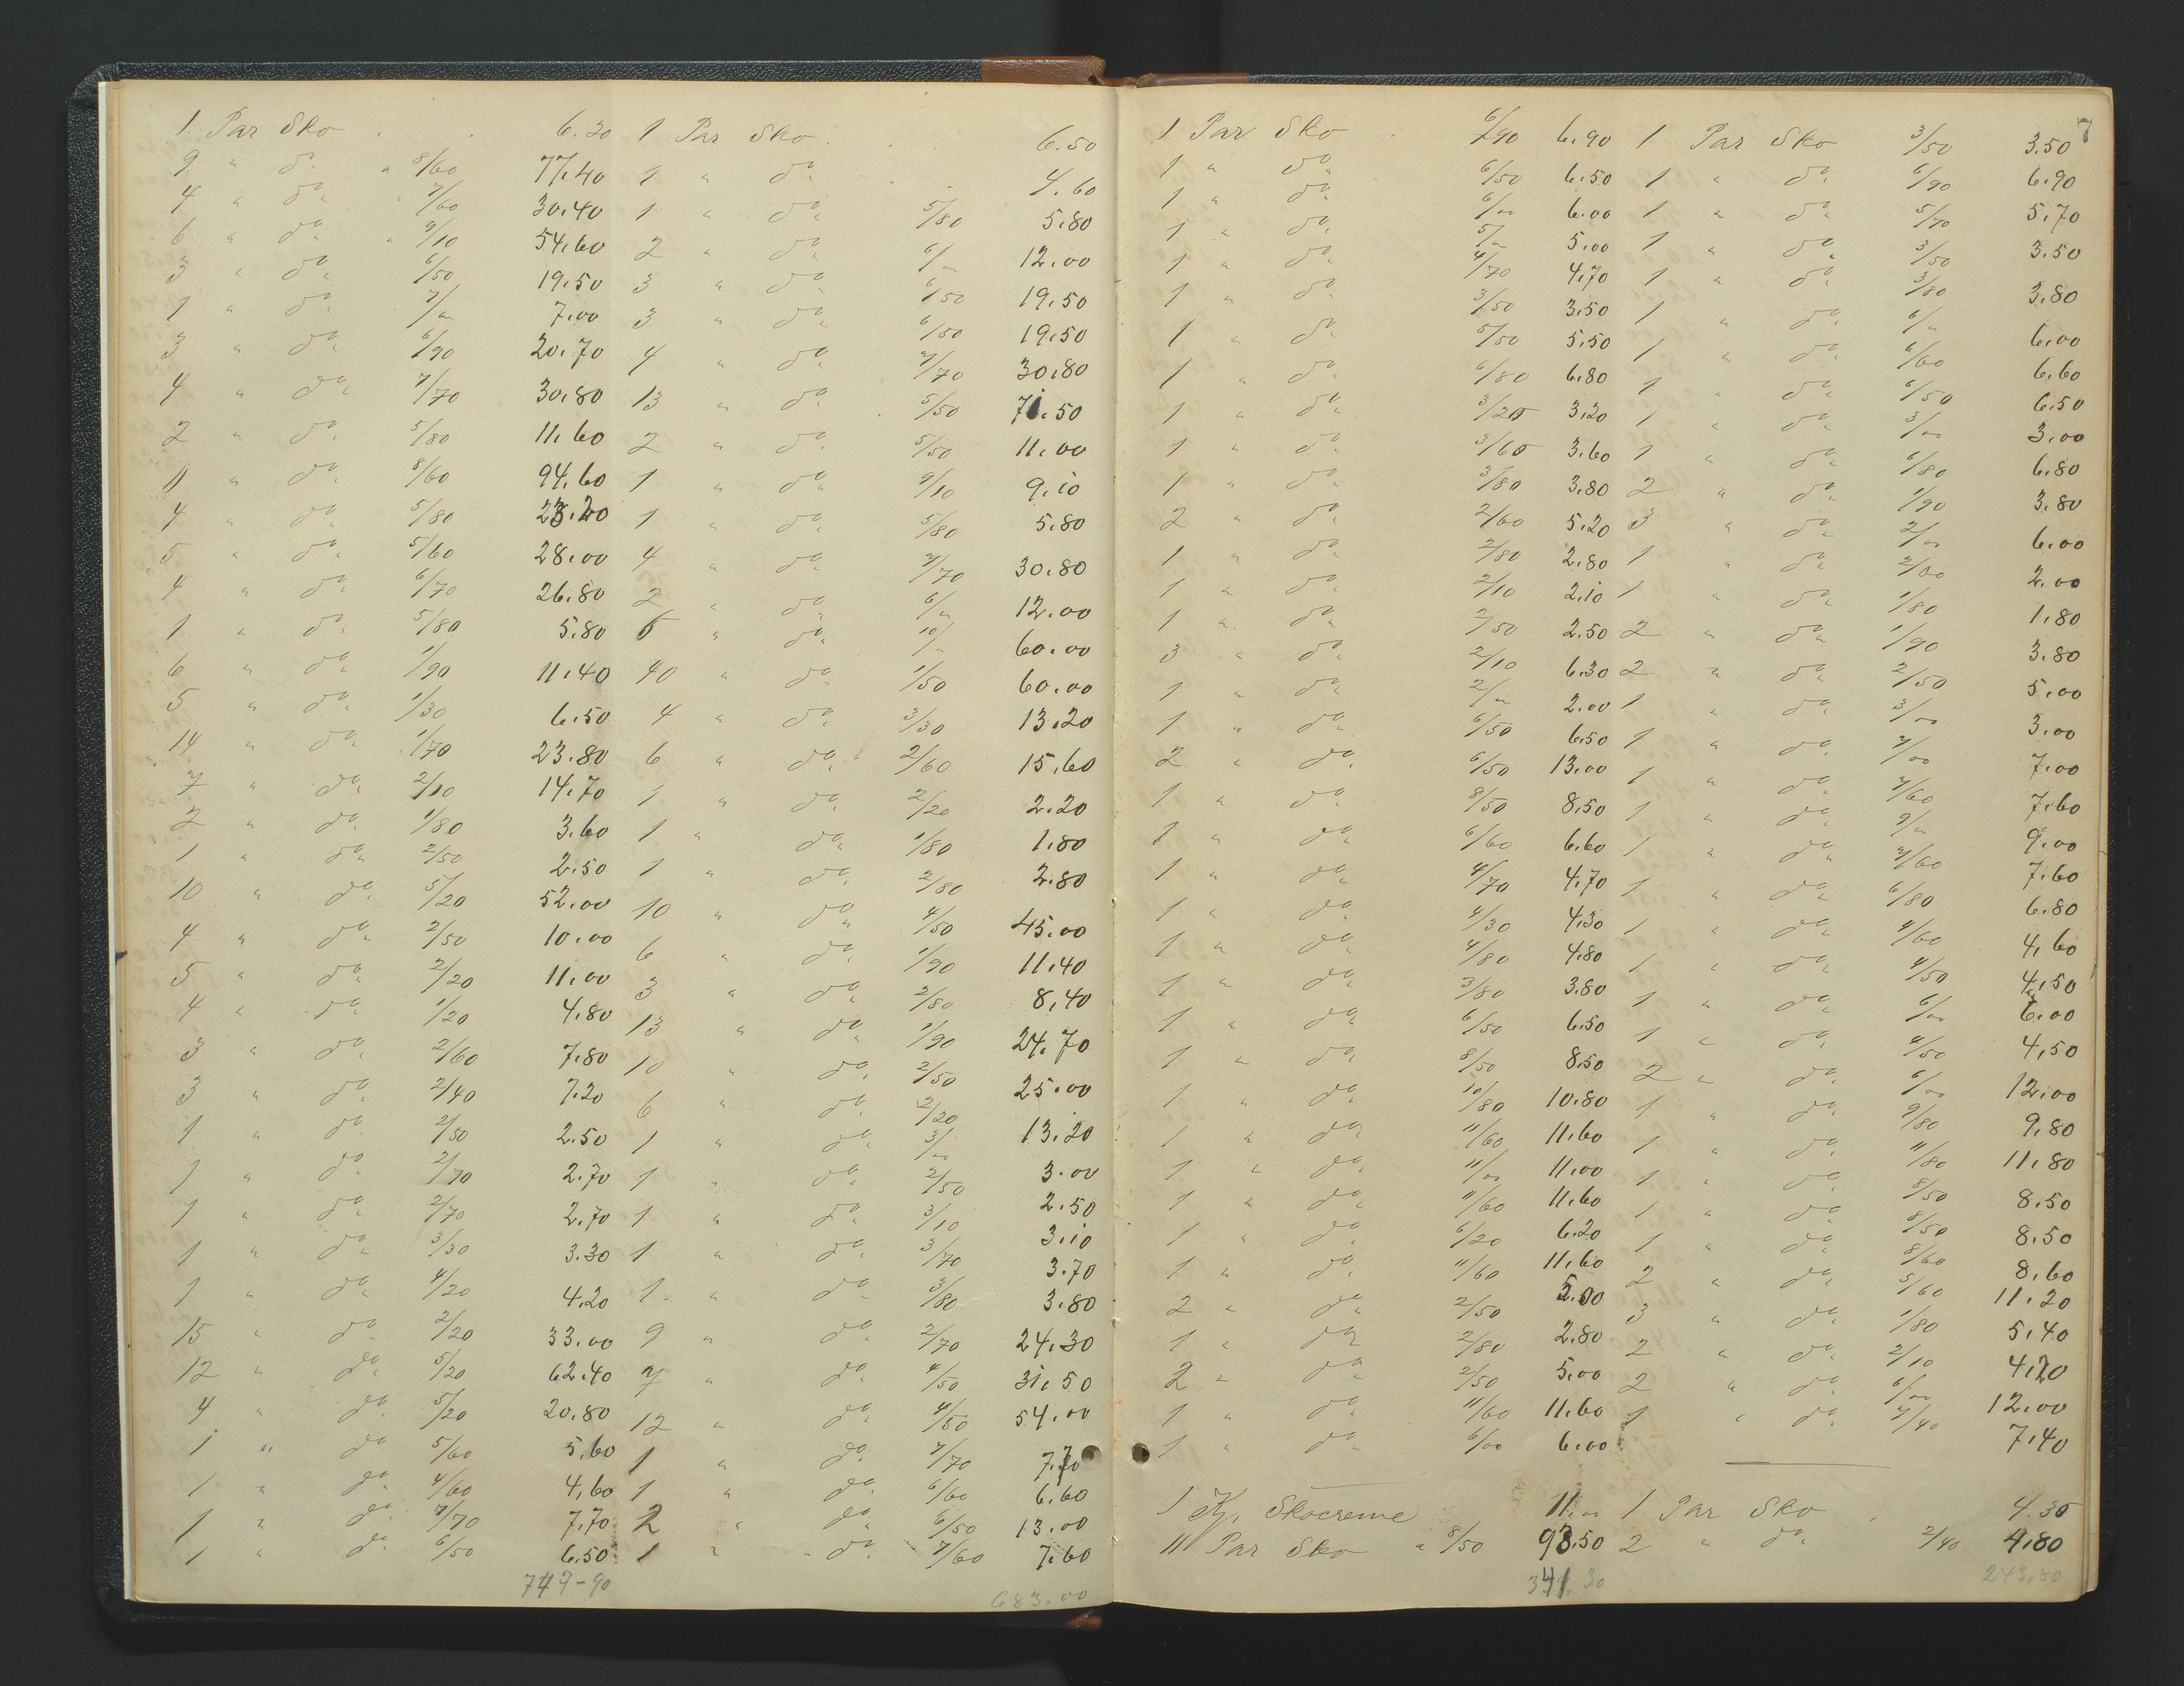 1 Par Sko . . 6.20
9 " do. " 8/60 77.40
4 " do. " 7/60 30.40
6 " do. " 9/10 54.60
3 " do. 6/50 19.50
1 " do. 7/" 7.00
3 " do. 6/90 20.70
4 " do. 7/70 30.80
2 " do. 5/80 11.60
11 " do. 8/60 94.60
4 " do. 5/80 23.20
5 " do. 5/60 28.00
4 " do. 6/70 26.80
1 " do. 5/80 5.80
6 " do. 1/90 11.40
5 " do. 1/30 6.50
14 " do. 1/70 23.80
7 " do. 2/10 14.70
2 " do. 1/80 3.60
1 " do. 2/50 2.50
10 " do. 5/20 52.00
4 " do. 2/50 10.00
5 " do. 2/20 11.00
4 " do. 1/20 4.80
3 " do. 2/60 7.80
3 " do. 2/40 7.20
1 " do. 2/50 2.50
1 " do. 2/70 2.70
1 " do. 2/70 2.70
1 " do. 3/30 3.30
1 " do. 4/20 4.20
15 " do. 2/20 33.00
12 " do. 5/20 62.40
4 " do. 5/20 20.80
1 " do 5/60 5.60
1 " do. 4/60 4.60
1 " do. 7/70 7.70
1 " do. 6/50 6.50
749-90
1 Par Sko . . 6.50
1 " do. . 4.60
1 " do. 5/80 5.80
2 " do. 6/" 12.00
3 " do. 6/50 19.50
3 " do. 6/50 19.50
4 " do. 7/70 30.80
13 " do. . 5/50 71.50
2 " do. 5/50 11.00
1 " do. 9/10 9.10
1 " do. 5/80 5.80
4 " do. 7/70 30.80
2 " do. 6/" 12.00
6 " do. 10/- 60.00
40 " do. 1/50 60.00
4 " do. 3/30 13.20
6 " do. 2/60 15.60
1 " do. 2/20 2.20
1 " do. 1/80 1.80
1 " do. 2/80 2.80
10 " do. 4/50 45.00
6 " do. 1/90 11.40
3 " do. 2/80 8.40
13 " do. 1/90 24.70
10 " do. 2/50 25.00
6 " do. 2/20 13.20
1 " do. 3/" 3.00
1 " do. 2/50 2.50
1 " do. 3/10 3.10
1 " do. 3/70 3.70
1 " do. 3/80 3.80
9 " do. 2/70 24.30
7 " do. 4/50 31.50
12 " do. 4/50 54.00
1 " do. 7/70 7.70
1 " do. 6/60 6.60
2 " do. 6/50 13.00
1 " do. 7/60 7.60
683.00
7
1 Par Sko . 6/90 6.90
1 " do. 6/50 6.50
1 " do. 6/00 6.00
1 " do. 5/" 5.00
1 " do. 4/70 4.70
1 " do. 3/50 3.50
1 " do. 5/50 5.50
1 " do. 6/80 6.80
1 " do. 3/20 3.20
1 " do. 3/60 3.60
1 " do. 3/80 3.80
2 " do. 2/60 5.20
1 " do. 2/80 2.80
1 " do. 2/10 2.10
1 " do. 2/50 2.50
3 " do. 2/10 6.30
1 " do. 2/" 2.00
1 " do. 6/50 6.50
2 " do. 6/50 13.00
1 " do. 8/50 8.50
1 " do. 6/60 6.60
1 " do. 4/70 4.70
1 " do. 4/30 4.30
1 " do. 4/80 4.80
1 " do. 3/80 3.80
1 " do. 6/50 6.50
1 " do. 8/50 8.50
1 " do. 10/80 10.80
1 " do 11/60 11.60
1 " do. 11/00 11.00
1 " do. 11/60 11.60
1 " do. 6/20 6.20
1 " do. 11/60 11.60
2 " do. 2/50 5.00
1 " do 2/80 2.80
2 " do. 2/50 5.00
1 " do. 11/60 11.60
1 " do. 6/00 6.00
1 Kp. Skocreme 11.00
11 Par Sko " 8/50 93.50
341.30
1 Par Sko 3/50 3.50
1 " do. 6/90 6.90
1 " do. 5/70 5.70
1 " do. 3/50 3.50
1 " do. 3/80 3.80
1 " do. 6/" 6.00
1 " do. 6/60 6.60
1 " do. 6/50 6.50
1 " do. 3/00 3.00
1 " do. 6/80 6.80
2 " do. 1/90 3.80
3 " do. 2/00 6.00
1 " do. 2/00 2.00
1 " do. 1/80 1.80
2 " do. 1/90 3.80
2 " do. 2/50 5.00
1 " do. 3/00 3.00
1 " do. 7/00 7.00
1 " do. 7/60 7.60
1 " do. 9/" 9.00
1 " do. 7/60 7.60
1 " do. 6/80 6.80
1 " do. 4/60 4.60
1 " do. 4/50 4.50
1 " do. 6/00 6.00
1 " do. 4/50 4.50
2 " do. 6/00 12.00
1 " do. 9/80 9.80
1 " do. 11/80 11.80
1 " do. 8/50 8.50
1 " do. 8/50 8.50
1 " do. 8/60 8.60
2 " do. 5/60 11.20
3 " do. 1/80 5.40
2 " do. 2/10 4.20
2 " do. 6/00 12.00
1 " do. 7/40 7.40
1 Par Sko . 4.30
2 " do. 2/40 4.80
243.80